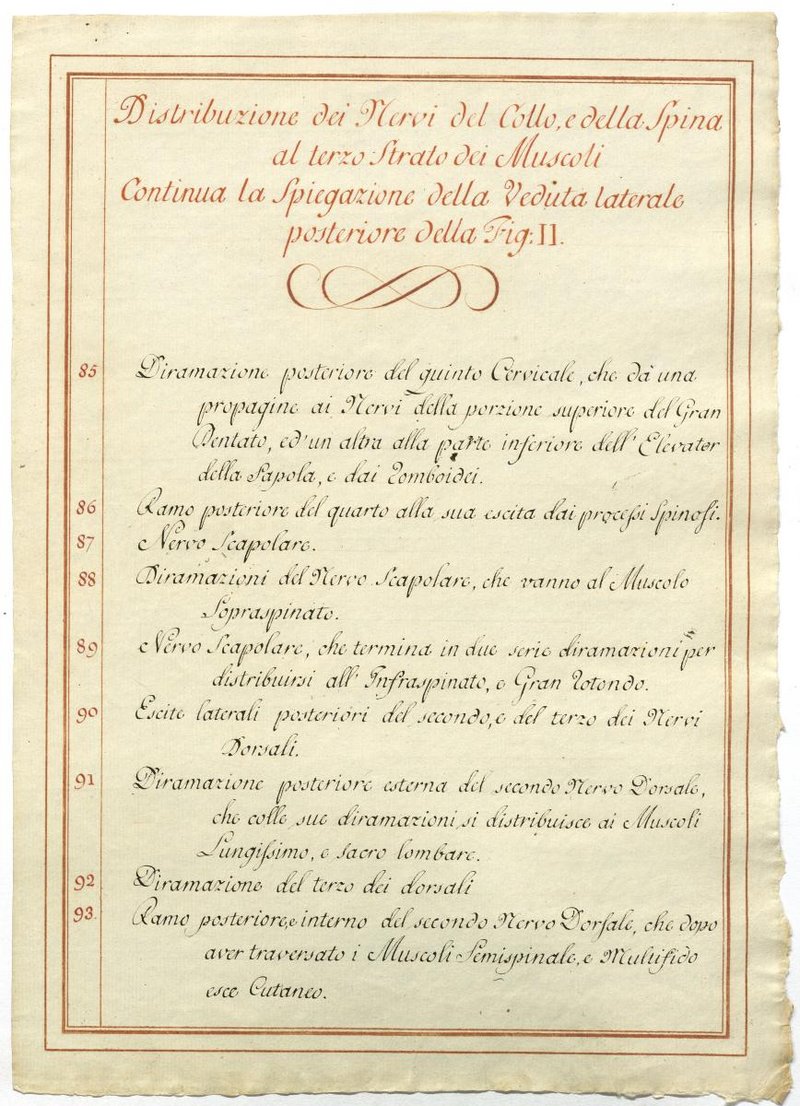 Distribuzione dei Nervi del Collo, e della Spina
al terzo Strato dei Muscoli
Continua la Spiegazione della Veduta laterale
posteriore della Fig: II.
85 Diramazione posteriore del quinto Cervicale, che dà una
propagine ai Nervi della porzione superiore del Gran
Dentato, ed'un altra alla parte inferiore dell' Elevator
della Papola, e dai Romboidei.
86 Ramo posteriore del quarto alla sua escita dai proceſsi Spinoſi.
87 Nervo Scapolare.
88 Diramazioni del Nervo Scapolare, che vanno al Muscolo
Sopraspinato.
89 Nervo Scapolare, che termina in due serie diramazioni per
distribuirsi all' Infraspinato, e Gran Rotondo.
90 Escite laterali posteriori del secondo, e del terzo dei Nervi
Dorsali.
91 Diramazione posteriore esterna del secondo Nervo Dorsale,
che colle sue diramazioni, si distribuisce ai Muscoli
Lungiſsimo, e sacro lombare.
92 Diramazione del terzo dei dorsali
93. Ramo posteriore, e interno del secondo Nervo Dorſale, che dopo
aver traversato i Muscoli Semispinale, e Multifido
esce Cutaneo.